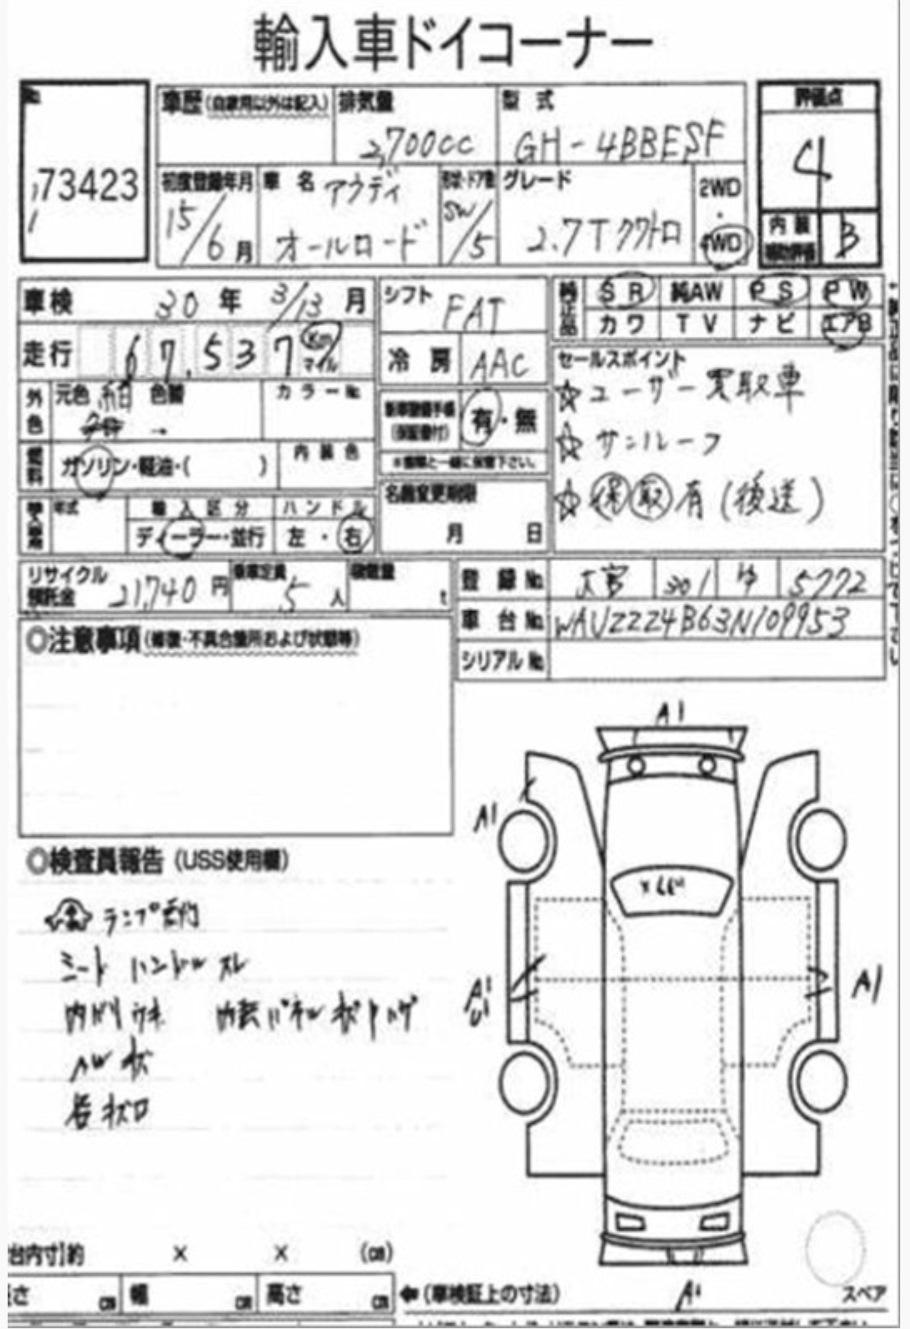 輸入車ドイコーナー
No. 73423
車歴(自家用以外は記入)
排気量 2,700cc
型式 GH-4BBESF
評価点 4
初度登録年月 15/6月
車名 アウディ オールロード
形状・ドア数 SW/5
グレード 2.7T クワトロ
2WD・4WD
内装補助評価 B
車検 30年 3/13月
シフト FAT
純正品 SR 純AW PS PW
カワ TV ナビ エアB
走行 67,537 Km マイル
冷房 AAC
セールスポイント
☆ユーザー買取車
☆サンルーフ
☆保取有(後送)
外色 元色 紺 色替
カラーNo.
新車整備手帳(保証書付) 有・無
※書類と一緒に保管下さい。
燃料 ガソリン・軽油・( )
内装色
名義変更期限
月 日
輸入車用 年式
輸入区分 ディーラー・並行
ハンドル 左・右
リサイクル預託金 21,740円
乗車定員 5人
積載量 t
登録No. 大宮 301 ゆ 5772
車台No. WAUZZZ4B63N109953
シリアルNo.
◎注意事項(修復・不具合箇所および状態等)
◎検査員報告(USS使用欄)
シート ハンドル スレ
A1
A1
A1
U1
A1
A1
台内寸]約 × × (cm)
さ cm 幅 cm 高さ cm
(車検証上の寸法)
スペア